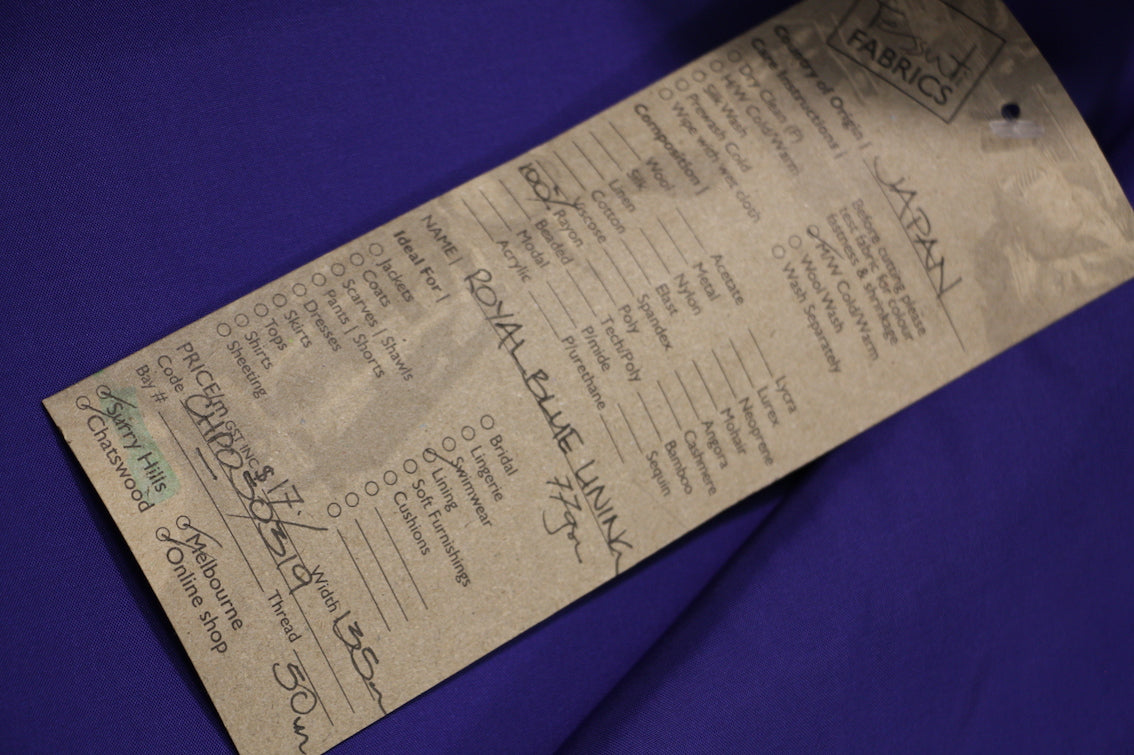 FABRICS
Country of Origin | JAPAN
Care Instructions |
Before cutting please
test fabric for colour
fastness & shrinkage
Dry Clean (P)
H/W Cold/Warm
Silk Wash
Prewash Cold
Wipe with wet cloth
M/W Cold/Warm
Wool Wash
Wash Separately
Composition |
Wool
Silk
Linen
Cotton
Viscose
100% Rayon
Beaded
Modal
Acrylic
Acetate
Metal
Nylon
Elast
Spandex
Poly
Tech/Poly
P/mide
P/urethane
Lycra
Lurex
Neoprene
Mohair
Angora
Cashmere
Bamboo
Sequin
NAME | ROYAL BLUE LINING
77gm
Ideal For |
Jackets
Coats
Scarves | Shawls
Pants | Shorts
Dresses
Skirts
Tops
Shirts
Sheeting
Bridal
Lingerie
Swimwear
Lining
Soft Furnishings
Cushions
PRICE/m GST INC $ 17/
Width 135m
Code
Thread 50m
Bay #
Surry Hills
Chatswood
Melbourne
Online shop